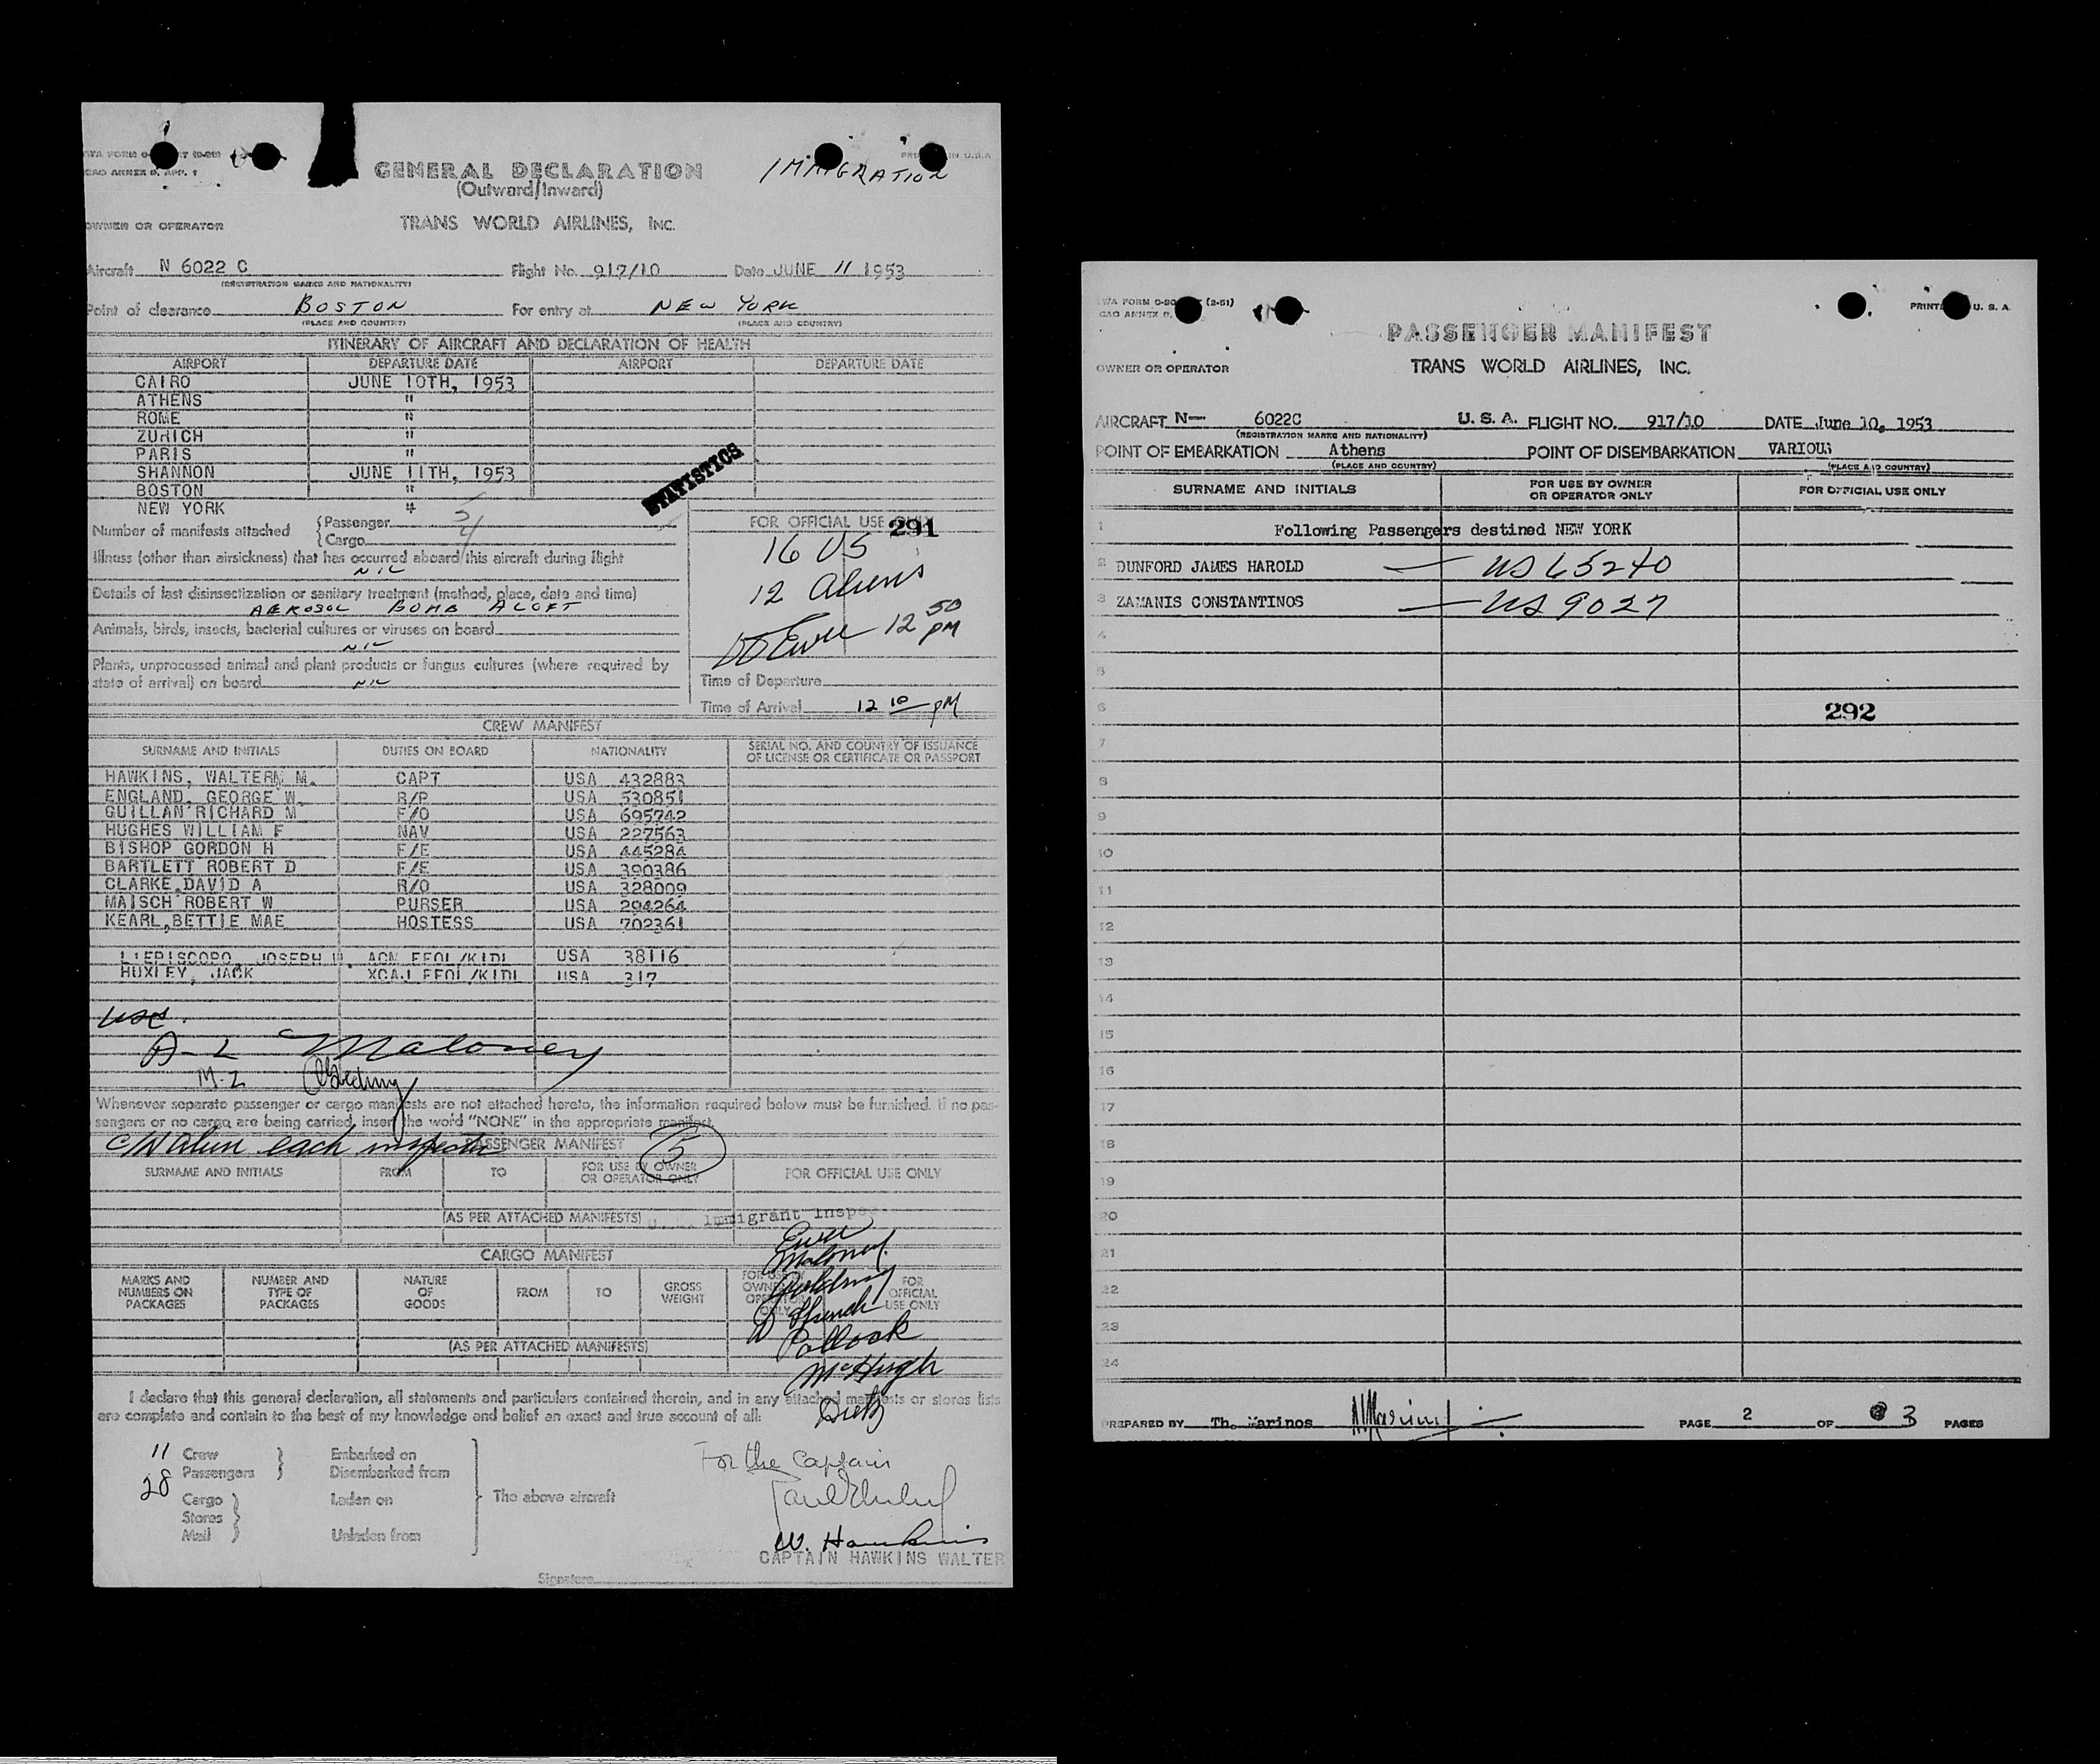 GENERAL DECLARATION
(Outward/Inward)
IMMIGRATION
OWNER OR OPERATOR TRANS WORLD AIRLINES, INC.
Aircraft N 6022 C Flight No. 917/10 Date JUNE 11 1953
(REGISTRATION MARKS AND NATIONALITY)
Point of clearance BOSTON For entry at NEW YORK
(PLACE AND COUNTRY) (PLACE AND COUNTRY)
ITINERARY OF AIRCRAFT AND DECLARATION OF HEALTH
AIRPORT DEPARTURE DATE AIRPORT DEPARTURE DATE
CAIRO JUNE 10TH, 1953
ATHENS "
ROME "
ZURICH "
PARIS "
SHANNON JUNE 11TH, 1953
BOSTON "
NEW YORK "
STATISTICS
Number of manifests attached { Passenger
{ Cargo
FOR OFFICIAL USE ONLY
291
16 US
12 Aliens
12 50 PM
Illness (other than airsickness) that has occurred aboard this aircraft during flight
NIL
Details of last disinsectization or sanitary treatment (method, place, date and time)
AEROSOL BOMB ALOFT
Animals, birds, insects, bacterial cultures or viruses on board
NIL
Plants, unprocessed animal and plant products or fungus cultures (where required by
state of arrival) on board NIL
Time of Departure
Time of Arrival 12 10 PM
CREW MANIFEST
SURNAME AND INITIALS DUTIES ON BOARD NATIONALITY SERIAL NO. AND COUNTRY OF ISSUANCE
OF LICENSE OR CERTIFICATE OR PASSPORT
HAWKINS, WALTERM M. CAPT USA 432883
ENGLAND, GEORGE W. R/P USA 530851
GUILLAN RICHARD M F/O USA 695742
HUGHES WILLIAM F NAV USA 227563
BISHOP GORDON H F/E USA 445284
BARTLETT ROBERT D F/E USA 390386
CLARKE,DAVID A R/O USA 328009
MAISCH ROBERT W PURSER USA 294264
KEARL,BETTIE MAE HOSTESS USA 702361
JOSEPH USA 38116
HUXLEY, JACK USA 317
USC.
Maloney
Whenever separate passenger or cargo manifests are not attached hereto, the information required below must be furnished. If no pas-
sengers or no cargo are being carried, insert the word "NONE" in the appropriate manifest.
each inspector
PASSENGER MANIFEST
5
SURNAME AND INITIALS FROM TO FOR USE BY OWNER
OR OPERATOR ONLY FOR OFFICIAL USE ONLY
(AS PER ATTACHED MANIFESTS)
Immigrant Inspec
Maloney
CARGO MANIFEST
MARKS AND
NUMBERS ON
PACKAGES NUMBER AND
TYPE OF
PACKAGES NATURE
OF
GOODS FROM TO GROSS
WEIGHT FOR USE BY
OWNER OR
OPERATOR
ONLY FOR
OFFICIAL
USE ONLY
Pollock
(AS PER ATTACHED MANIFESTS)
McHugh
I declare that this general declaration, all statements and particulars contained therein, and in any attached manifests or stores lists
are complete and contain to the best of my knowledge and belief an exact and true account of all:
11 Crew } Embarked on
28 Passengers } Disembarked from
Cargo } Laden on
Stores }
Mail } Unladen from
The above aircraft
For the Captain
W. Hawkins
CAPTAIN HAWKINS WALTER
Signature
PASSENGER MANIFEST
OWNER OR OPERATOR TRANS WORLD AIRLINES, INC.
AIRCRAFT N— 6022C U. S. A. FLIGHT NO. 917/10 DATE June 10, 1953
(REGISTRATION MARKS AND NATIONALITY)
POINT OF EMBARKATION Athens POINT OF DISEMBARKATION VARIOUS
(PLACE AND COUNTRY) (PLACE AND COUNTRY)
SURNAME AND INITIALS FOR USE BY OWNER
OR OPERATOR ONLY FOR OFFICIAL USE ONLY
1 Following Passengers destined NEW YORK
2 DUNFORD JAMES HAROLD — US 65240
3 ZAMANIS CONSTANTINOS — US 9027
4
5
6 292
7
8
9
10
11
12
13
14
15
16
17
18
19
20
21
22
23
24
PREPARED BY Th. Marinos PAGE 2 OF 3 PAGES